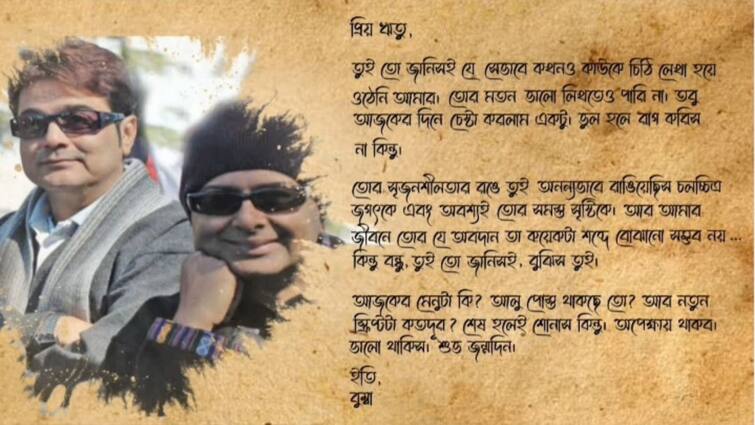 প্রিয় ঋতু,
তুই তো জানিসই যে সেভাবে কখনও কাউকে চিঠি লেখা হয়ে
ওঠেনি আমার। তোর মতন ভালো লিখতেও পারি না। তবু
আজকের দিনে চেষ্টা করলাম একটু। ভুল হলে রাগ করিস
না কিন্তু।
তোর সৃজনশীলতার রঙে তুই অনন্যভাবে রাঙিয়েছিস চলচ্চিত্র
জগৎকে এবং অবশ্যই তোর সমস্ত সৃষ্টিকে। আর আমার
জীবনে তোর যে অবদান তা কয়েকটা শব্দে বোঝানো সম্ভব নয় ...
কিন্তু বন্ধু, তুই তো জানিসই, বুঝিস তুই।
আজকের মেনুটা কি? আলু পোস্ত থাকছে তো? আর নতুন
স্ক্রিপ্টটা কতদূর? শেষ হলেই শোনাস কিন্তু। অপেক্ষায় থাকব।
ভালো থাকিস। শুভ জন্মদিন।
ইতি,
বুম্বা